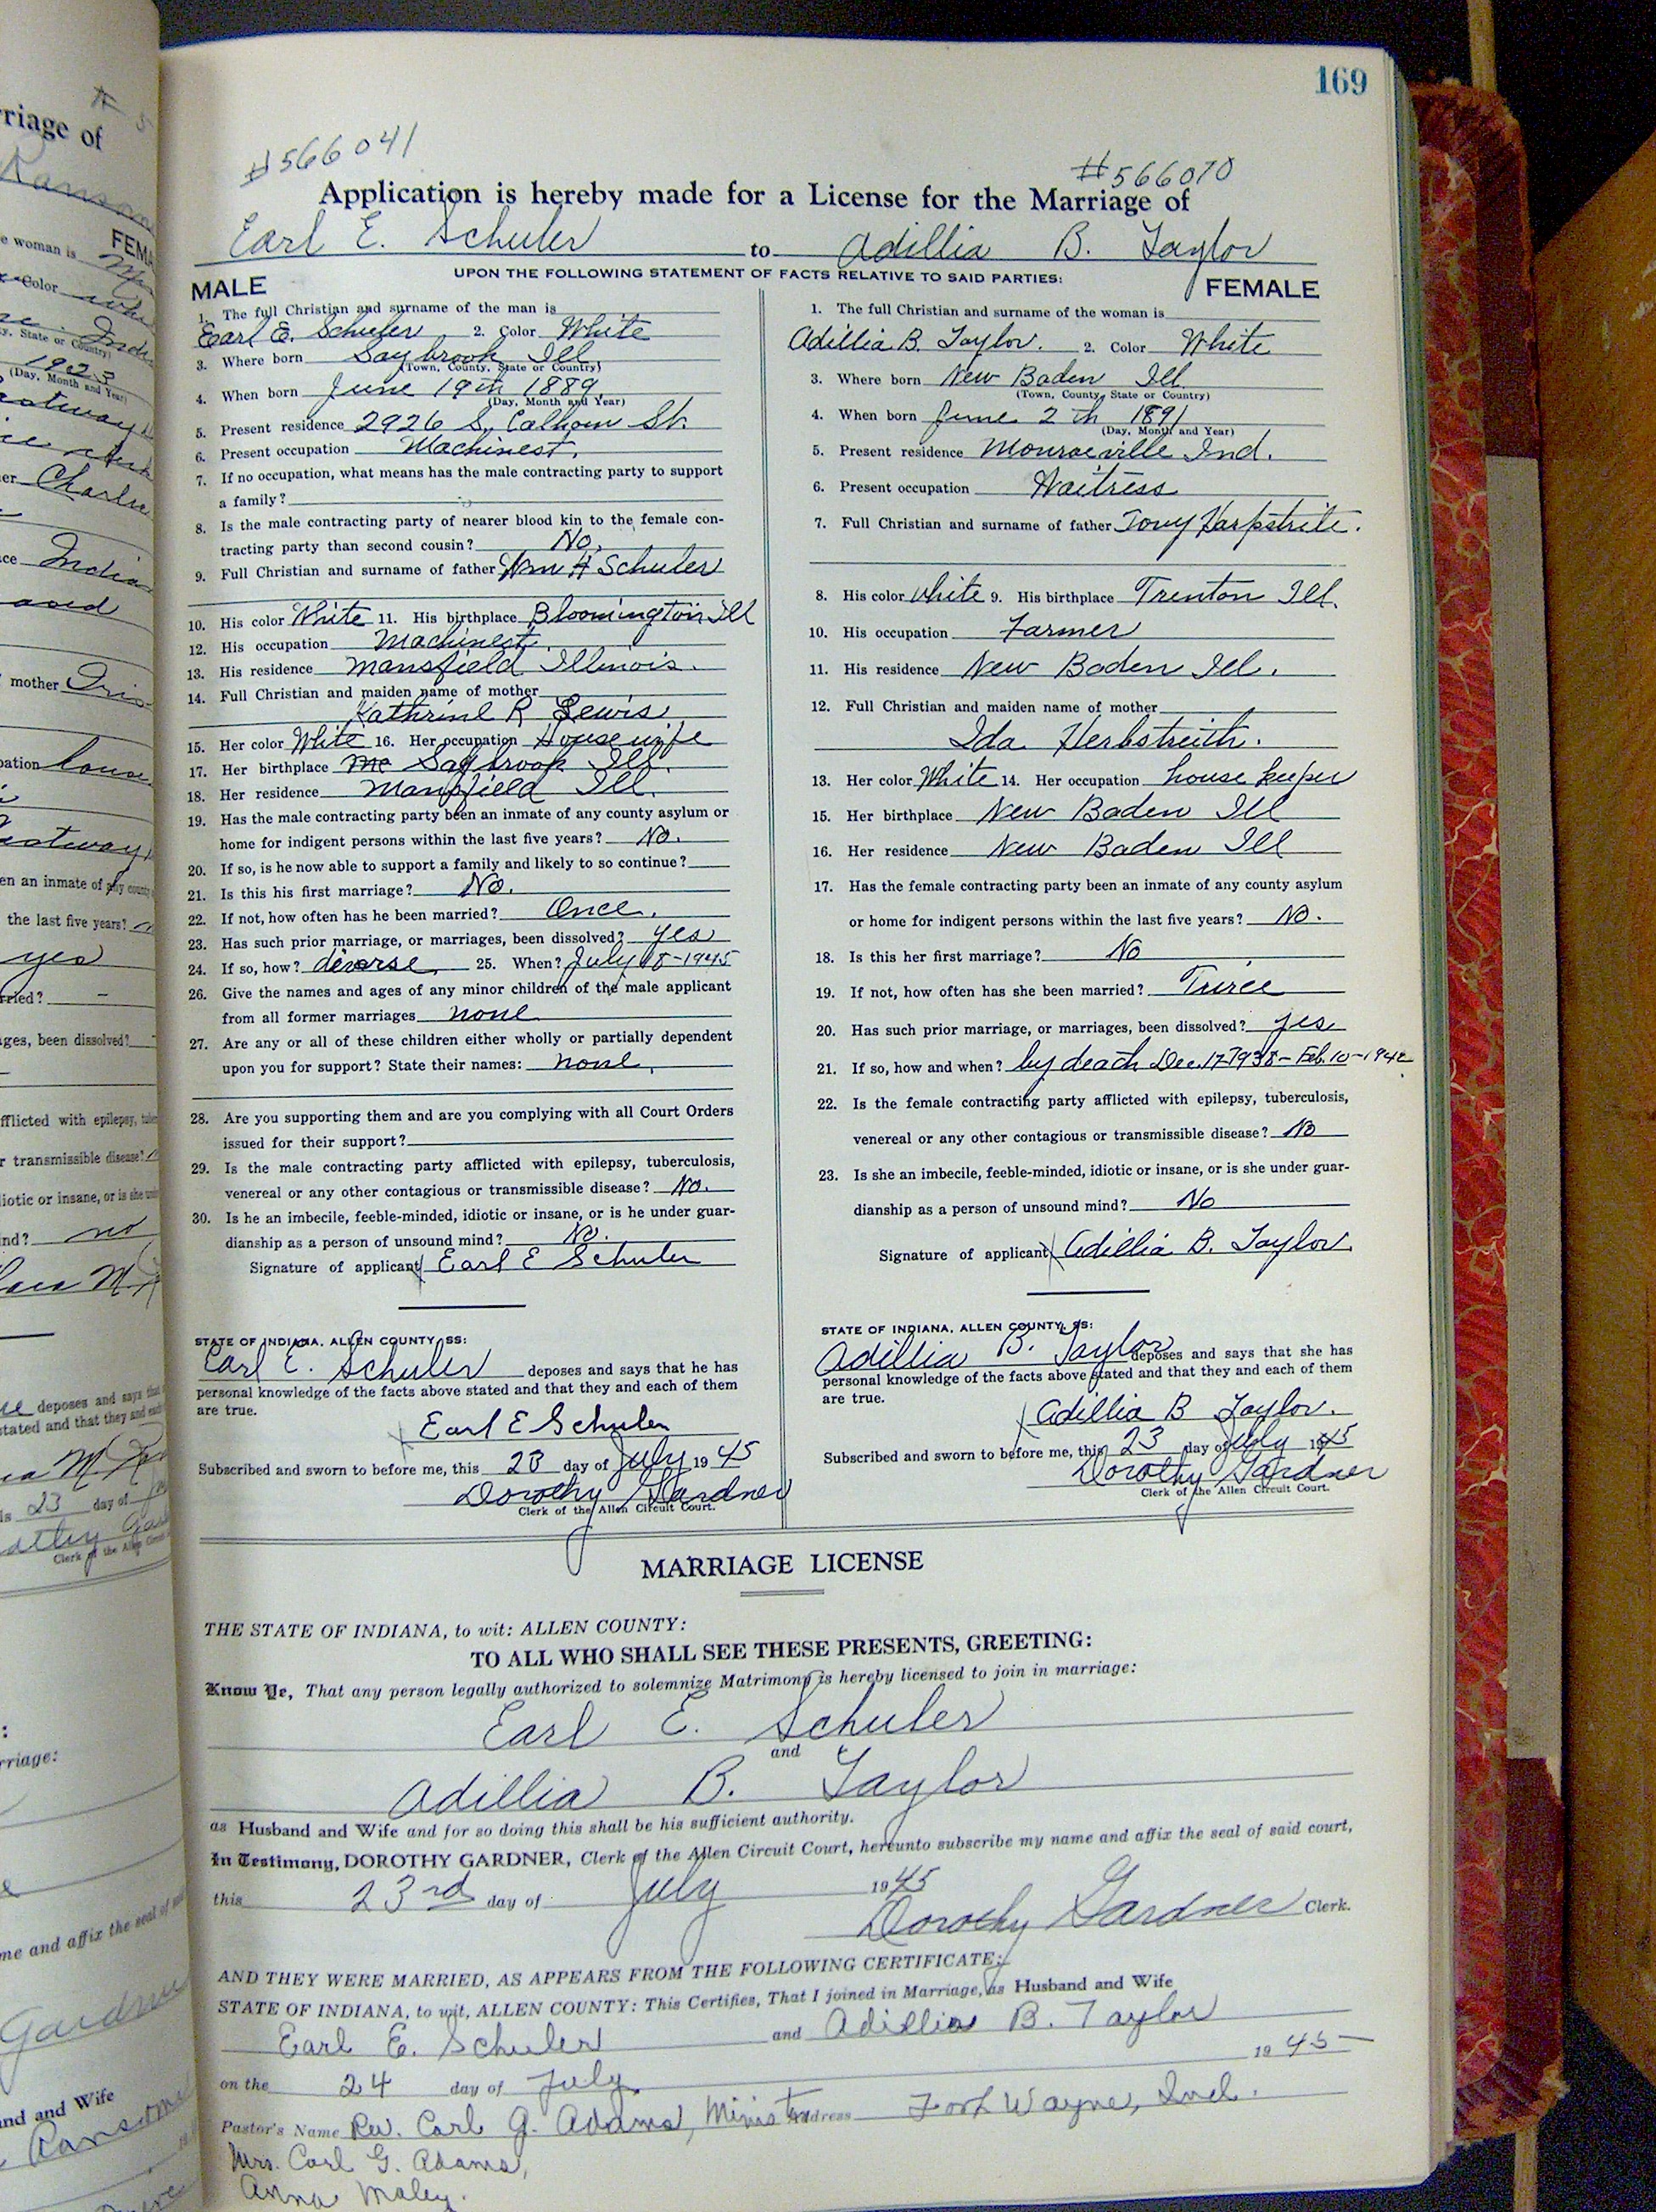 169
#566041
#566070
Application is hereby made for a License for the Marriage of
Earl E. Schuler to Adillia B. Taylor
UPON THE FOLLOWING STATEMENT OF FACTS RELATIVE TO SAID PARTIES:
MALE
1. The full Christian and surname of the man is
Earl E. Schuler 2. Color White
3. Where born Saybrook Ill.
(Town, County, State or Country)
4. When born June 19th 1889
(Day, Month and Year)
5. Present residence 2926 S. Calhoun St.
6. Present occupation Machinest.
7. If no occupation, what means has the male contracting party to support
a family?
8. Is the male contracting party of nearer blood kin to the female con-
tracting party than second cousin? No.
9. Full Christian and surname of father Wm H Schuler
10. His color White 11. His birthplace Bloomington Ill
12. His occupation Machinest.
13. His residence Mansfield Illinois.
14. Full Christian and maiden name of mother
Kathrine R Lewis
15. Her color White 16. Her occupation Housewife
17. Her birthplace Saybrook Ill.
18. Her residence Mansfield Ill.
19. Has the male contracting party been an inmate of any county asylum or
home for indigent persons within the last five years? No.
20. If so, is he now able to support a family and likely to so continue?
21. Is this his first marriage? No.
22. If not, how often has he been married? Once.
23. Has such prior marriage, or marriages, been dissolved? yes
24. If so, how? divorse 25. When? July 18-1945
26. Give the names and ages of any minor children of the male applicant
from all former marriages none
27. Are any or all of these children either wholly or partially dependent
upon you for support? State their names: none.
28. Are you supporting them and are you complying with all Court Orders
issued for their support?
29. Is the male contracting party afflicted with epilepsy, tuberculosis,
venereal or any other contagious or transmissible disease? No.
30. Is he an imbecile, feeble-minded, idiotic or insane, or is he under guar-
dianship as a person of unsound mind? No.
Signature of applicant Earl E Schuler
STATE OF INDIANA, ALLEN COUNTY, SS:
Earl E. Schuler deposes and says that he has
personal knowledge of the facts above stated and that they and each of them
are true.
Earl E Schuler
Subscribed and sworn to before me, this 23 day of July 1945
Dorothy Gardner
Clerk of the Allen Circuit Court.
FEMALE
1. The full Christian and surname of the woman is
Adillia B. Taylor. 2. Color White
3. Where born New Baden Ill.
(Town, County, State or Country)
4. When born June 2th 1891
(Day, Month and Year)
5. Present residence Monroeville Ind.
6. Present occupation Waitress
7. Full Christian and surname of father Tony Harpstrite.
8. His color White 9. His birthplace Trenton Ill.
10. His occupation Farmer
11. His residence New Baden Ill.
12. Full Christian and maiden name of mother
Ida Herbstreith.
13. Her color White 14. Her occupation house keeper
15. Her birthplace New Baden Ill
16. Her residence New Baden Ill
17. Has the female contracting party been an inmate of any county asylum
or home for indigent persons within the last five years? No.
18. Is this her first marriage? No
19. If not, how often has she been married? Twice
20. Has such prior marriage, or marriages, been dissolved? yes
21. If so, how and when? by death Dec. 17-1938- Feb. 10-1942
22. Is the female contracting party afflicted with epilepsy, tuberculosis,
venereal or any other contagious or transmissible disease? No
23. Is she an imbecile, feeble-minded, idiotic or insane, or is she under guar-
dianship as a person of unsound mind? No
Signature of applicant Adillia B. Taylor.
STATE OF INDIANA, ALLEN COUNTY, SS:
Adillia B. Taylor deposes and says that she has
personal knowledge of the facts above stated and that they and each of them
are true.
Adillia B Taylor.
Subscribed and sworn to before me, this 23 day of July 1945
Dorothy Gardner
Clerk of the Allen Circuit Court.
MARRIAGE LICENSE
THE STATE OF INDIANA, to wit: ALLEN COUNTY:
TO ALL WHO SHALL SEE THESE PRESENTS, GREETING:
Know Ye, That any person legally authorized to solemnize Matrimony is hereby licensed to join in marriage:
Earl E. Schuler
and
Adillia B. Taylor
as Husband and Wife and for so doing this shall be his sufficient authority.
In Testimony, DOROTHY GARDNER, Clerk of the Allen Circuit Court, hereunto subscribe my name and affix the seal of said court,
this 23rd day of July 1945
Dorothy Gardner Clerk.
AND THEY WERE MARRIED, AS APPEARS FROM THE FOLLOWING CERTIFICATE:
STATE OF INDIANA, to wit, ALLEN COUNTY: This Certifies, That I joined in Marriage, as Husband and Wife
Earl E. Schuler and Adillia B. Taylor
on the 24 day of July 1945
Pastor's Name Rev. Carl G. Adams, Minister Address Fort Wayne, Ind.
Mrs. Carl G. Adams,
Anna Maley.